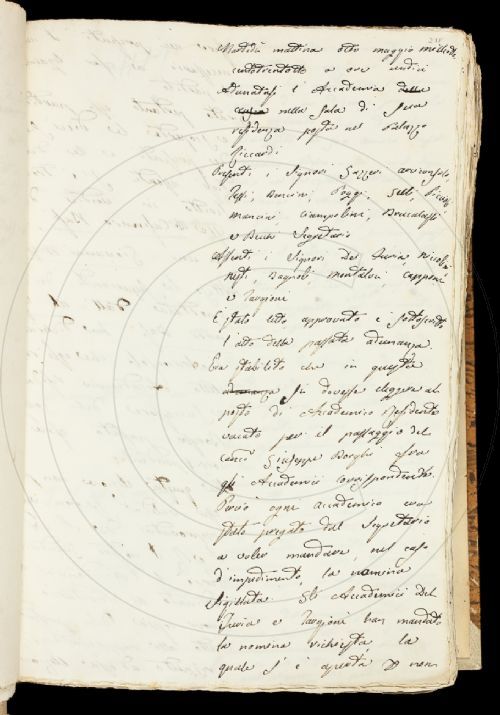 Martedì mattina otto maggio mille otto
centotrentotto a ore undici
Adunatasi l'Accademia della
Crusca nella sala di sua
residenza posta nel Palazzo
Riccardi
Presenti i Signori Gazzeri arciconsolo,
Rossi, Bencini, Poggi, Selli,
Mancini Ciampolini, Bruscalassi
e Becchi Segretario
Assenti i Signori Del Furia Niccolini
Nesti, Bagnoli Montalvi, Capponi
e Targioni
È stato letto, approvato e sottoscritto
l'atto della passata adunanza.
Era stabilito che in questa
adunanza si dovesse eleggere al
posto di Accademico residente
vacato per il passaggio del
canco Giuseppe Borghi fra
gli Accademici corrispondenti.
Perciò ogni accademico era
stato pregato dal Segretario
a voler mandare, nel caso
d'impedimento, la nomina
sigillata. Gli Accademici Del
Furia e Targioni han mandato
la nomina richiesta, la
quale s'è aperta non